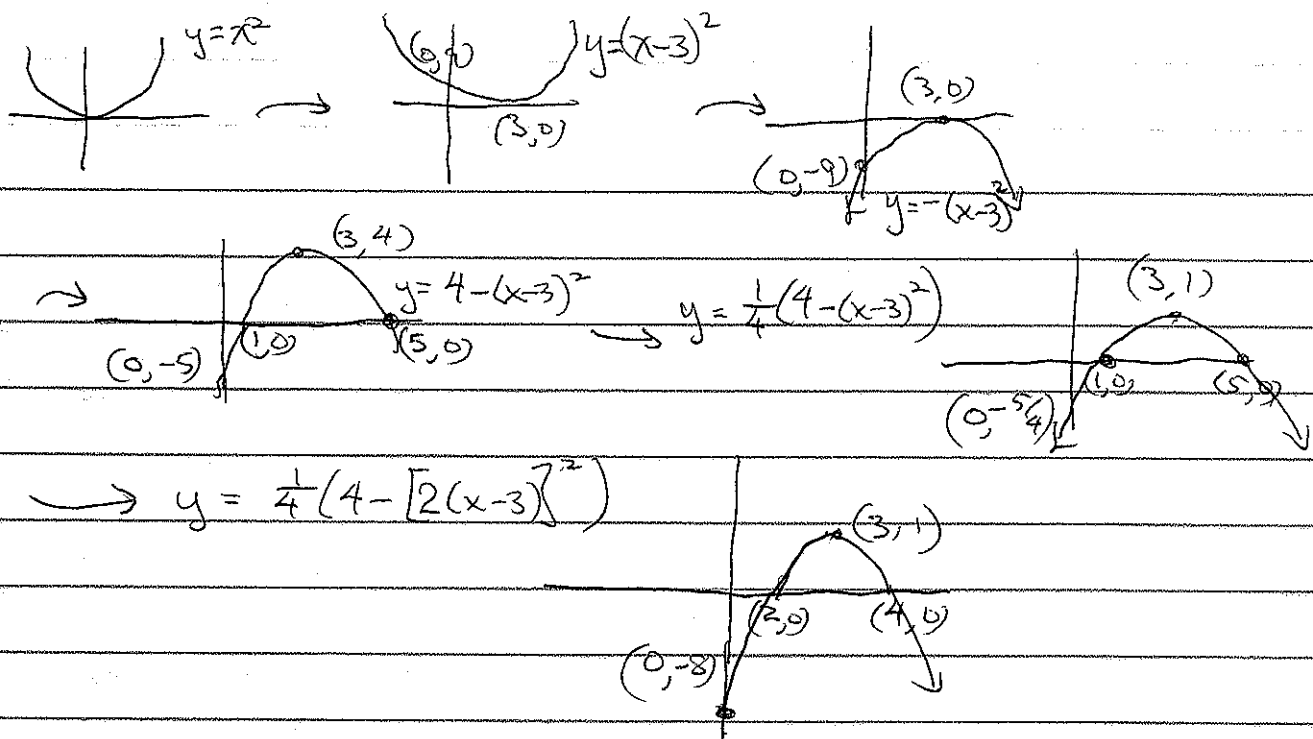 y=x²
(0,9) y=(x-3)²
(3,0)
(3,0)
(0,-9)
y=-(x-3)²
(3,4)
y=4-(x-3)²
(1,0) (5,0)
(0,-5)
y=1/4(4-(x-3)²)
(3,1)
(1,0, (5,0)
(0,-5/4)
y = 1/4(4-[2(x-3)]²)
(3,1)
(2,0) (4,0)
(0,-8)